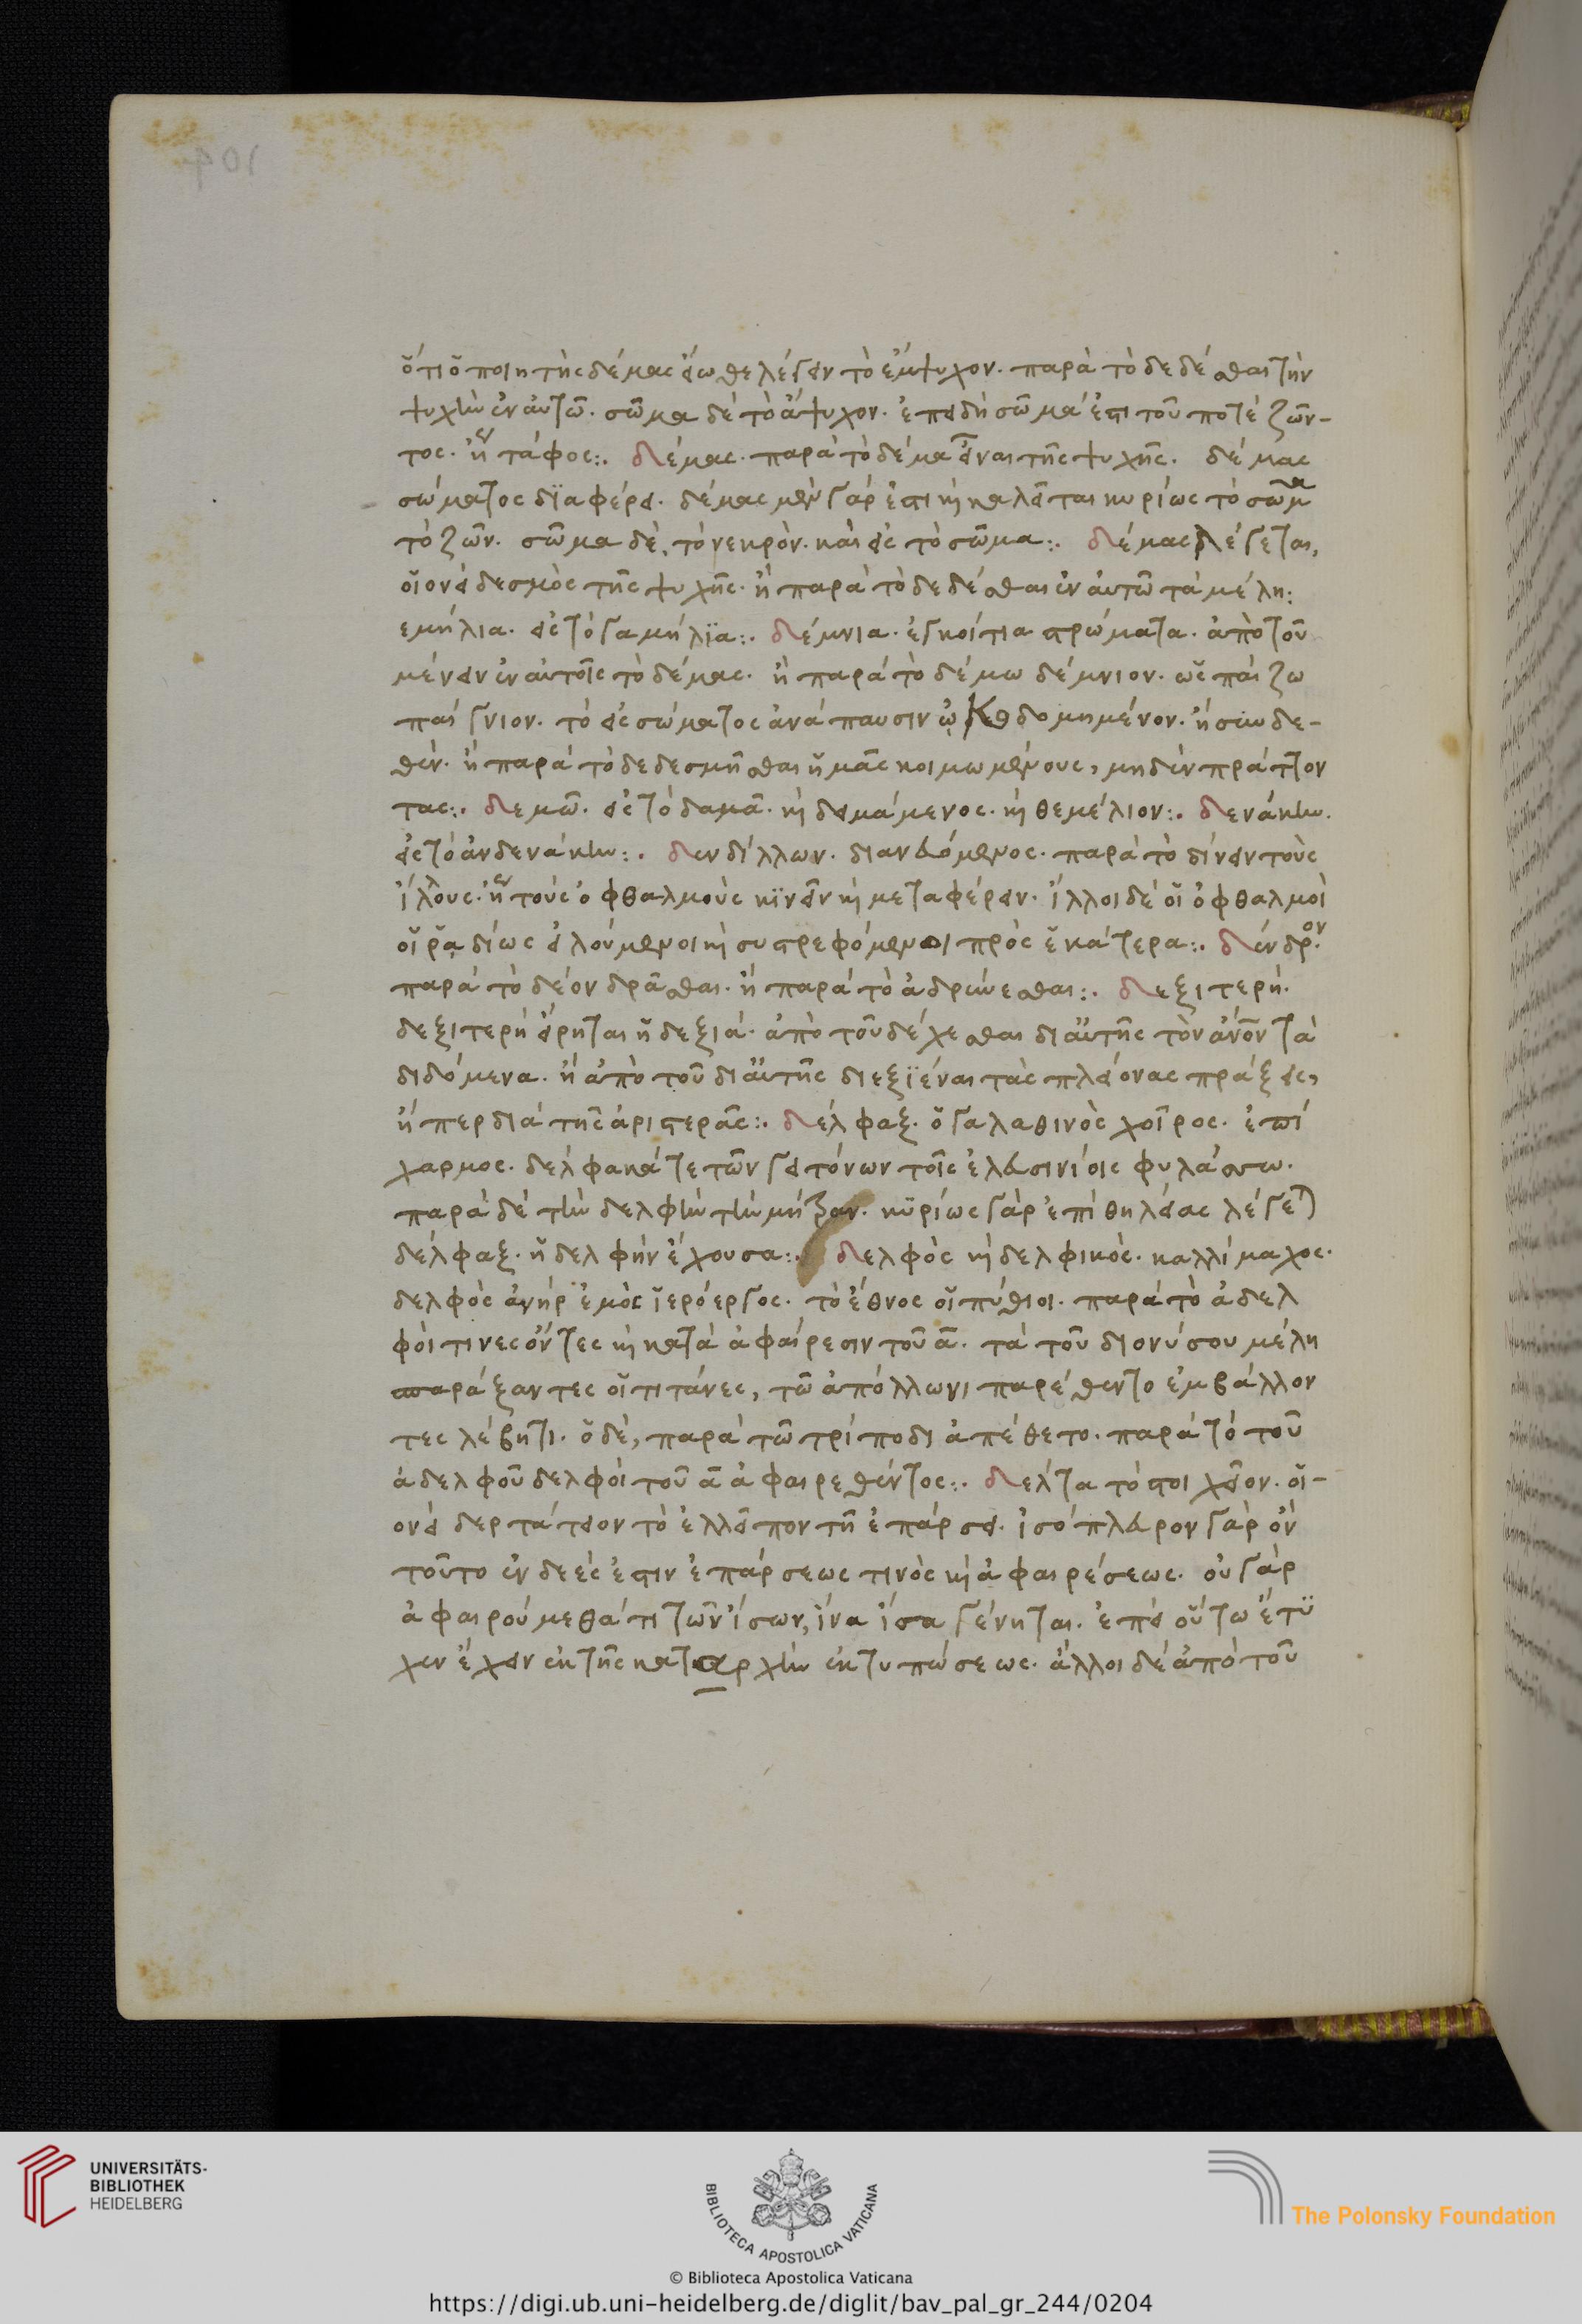 ὅτι ὁ ποιητὴς δέμας εἴωθε λέγειν τὸ ἔμψυχον. παρὰ τὸ δεδέσθαι τὴν
ψυχὴν ἐν αὐτῶ. σῶμα δὲ τὸ ἄψυχον. ἐπειδὴ σῶμά ἐστι τοῦ ποτὲ ζῶν-
τος. ἢ τάφος:. δέμας. παρὰ τὸ δέμα εἶναι τῆς ψυχῆς. δέμας
σώματος διαφέρει. δέμας μὲν γάρ ἐστι καὶ καλεῖται κυρίως τὸ σῶμα
τὸ ζῶν. σῶμα δὲ, τὸ νεκρὸν. καὶ εἰς τὸ σῶμα:. δέμας λέγεται,
οἱονεὶ δεσμὸς τῆς ψυχῆς. ἢ παρὰ τὸ δεδέσθαι ἐν αὐτῶ τὰ μέλη:
εμήλια. εἰς τὸ γαμήλια:. δέμνια. ἐγκοίτια στρώματα. ἀπὸ τοῦ
μένειν ἐν αὐτοῖς τὸ δέμας. ἢ παρὰ τὸ δέμω δέμνιον. ὡς παίζω
παίγνιον. τὸ εἰς σώματος ἀνάπαυσιν ὠκοδομημένον. ἢ συνδε-
θέν. ἢ παρὰ τὸ δεδεσμῆσθαι ἡμᾶς κοιμωμένους, μηδὲν πράττον
τας:. δεμῶ. εἰς τὸ δαμᾶ. καὶ δειμάμενος. καὶ θεμέλιον:. δενάκην.
εἰς τὸ ἀνδενάκην:. δενδίλλων. διανευόμενος. παρὰ τὸ δίνειν τοὺς
ἴλλους. ἢ τοὺς ὀφθαλμοὺς κινεῖν καὶ μεταφέρειν. ἴλλοι δὲ οἱ ὀφθαλμοὶ
οἱ ῥαδίως εἱλούμενοι καὶ συστρεφόμενοι πρὸς ἑκάτερα:. δένδρον.
παρὰ τὸ δέον δρᾶσθαι. ἢ παρὰ τὸ ἁδρύνεσθαι:. δεξιτερή.
δεξιτερὴ εἴρηται ἡ δεξιά. ἀπὸ τοῦ δέχεσθαι δι' αὐτῆς τὸν ἄνον τὰ
διδόμενα. ἢ ἀπὸ τοῦ δι' αὐτῆς διεξιέναι τὰς πλείονας πράξεις,
ἤπερ διὰ τῆς ἀριστερᾶς:. δέλφαξ. ὁ γαλαθινὸς χοῖρος. ἐπί
χαρμος. δέλφακά τε τῶν γειτόνων τοῖς ἐλευσινίοις φυλάσσω.
παρὰ δὲ τὴν δελφὴν τὴν μήτραν. κυρίως γὰρ ἐπὶ θηλείας λέγεται
δέλφαξ. ἡ δελφὴν ἔχουσα:. δελφὸς καὶ δελφικὸς. καλλίμαχος.
δελφὸς ἀνὴρ ἐμὸς ἱερόεργος. τὸ ἔθνος οἱ πύθιοι. παρὰ τὸ ἀδελ
φοί τινες ὄντες καὶ κατὰ ἀφαίρεσιν τοῦ α. τὰ τοῦ διονύσου μέλη
σπαράξαντες οἱ τιτᾶνες, τῶ ἀπόλλωνι παρέθεντο ἐμβάλλον
τες λέβητι. ὁ δὲ, παρὰ τῶ τρίποδι ἀπέθετο. παρὰ τὸ τοῦ
ἀδελφοῦ δελφοὶ τοῦ α ἀφαιρεθέντος:. δέλτα τὸ στοιχεῖον. οἱ-
ονεὶ δερτάτειον τὸ ἐλλεῖπον τῆ ἐπάρσει. ἰσόπλευρον γὰρ ὂν
τοῦτο ἐνδεές ἐστιν ἐπάρσεως τινὸς καὶ ἀφαιρέσεως. οὐ γὰρ
ἀφαιρούμεθά τι τῶν ἴσων, ἵνα ἴσα γένηται. ἐπεὶ οὕτω ἔτυ
χεν ἔχειν ἐκ τῆς καταρχὴν ἐκτυπώσεως. ἄλλοι δὲ ἀπὸ τοῦ
UNIVERSITÄTS-
BIBLIOTHEK
HEIDELBERG
BIBLIOTECA APOSTOLICA VATICANA
The Polonsky Foundation
© Biblioteca Apostolica Vaticana
https://digi.ub.uni-heidelberg.de/diglit/bav_pal_gr_244/0204